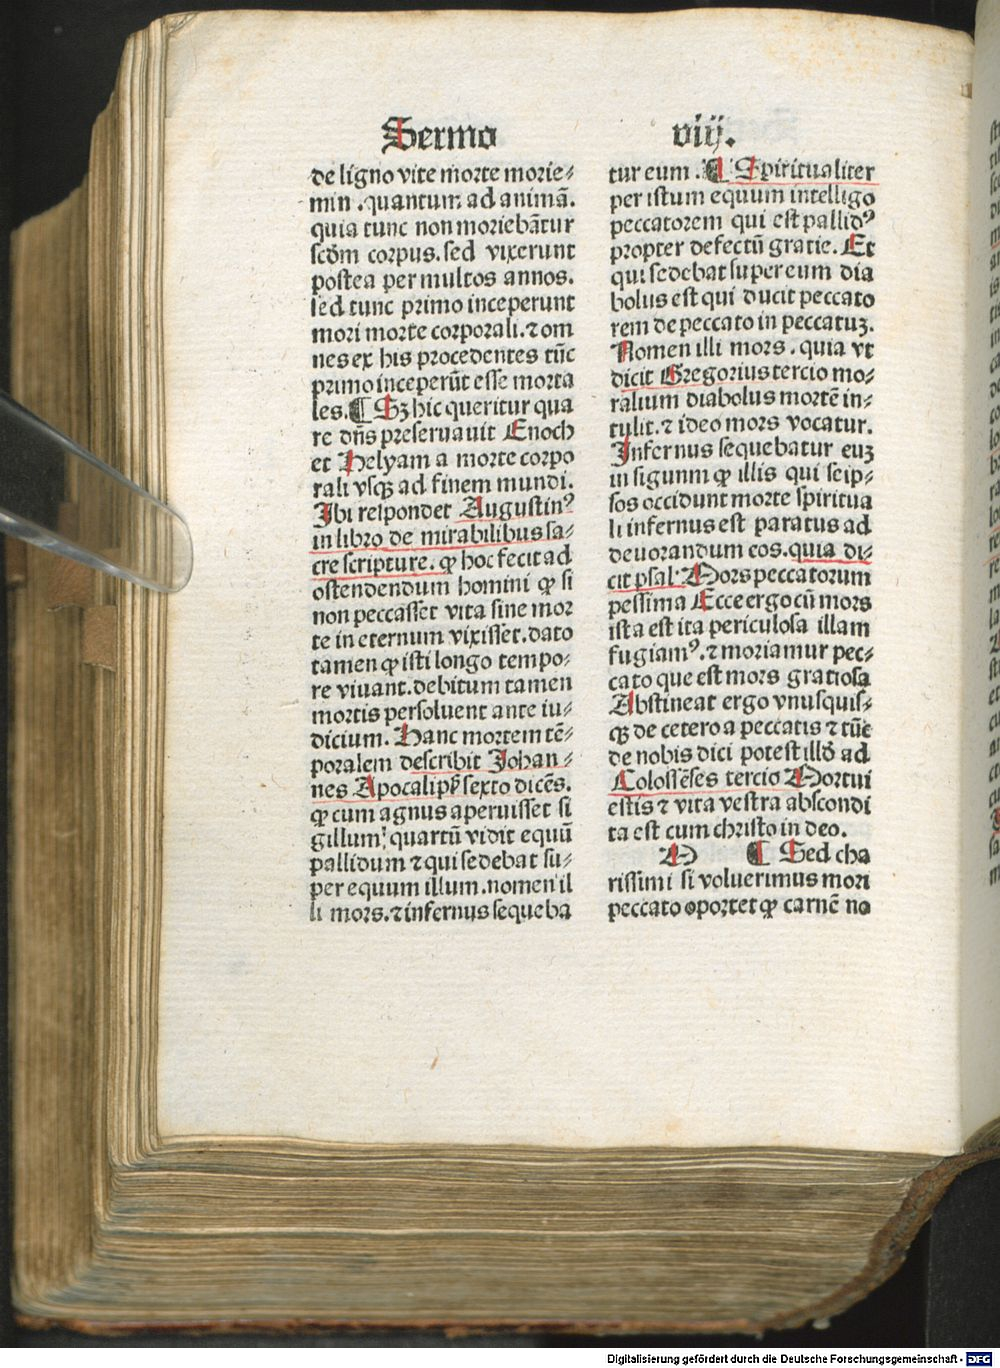 Sermo
viij.
de ligno vite morte morie⸗
min .quantum ad animā.
quia tunc non moriebātur
scḋm corpus.sed vixerunt
postea per multos annos.
sed tunc primo inceperunt
mori morte corporali.⁊ om
nes ex his procedentes tūc
primo inceperūt esse morta
les.¶ Sꝫ hic queritur qua
re dn̄s preseruauit Enoch
et Helyam a morte corpo
rali vsqꝫ ad finem mundi.
Ibi respondet Augustinꝰ
in libro de mirabilibus sa⸗
cre scripture. ꝙ hoc fecit ad
ostendendum homini ꝙ si
non peccasset vita sine mor
te in eternum vixisset.dato
tamen ꝙ isti longo tempo⸗
re viuant.debitum tamen
mortis persoluent ante iu⸗
dicium. Hanc mortem tē⸗
poralem describit Johan⸗
nes Apocalip̄ sexto dicēs.
ꝙ cum agnus aperuisset si
gillum quartū vidit equū
pallidum ⁊ qui sedebat su⸗
per equum illum.nomen il
li mors.⁊ infernus sequeba
tur eum .¶ Spiritualiter
per istum equum intelligo
peccatorem qui est pallidꝰ
propter defectū gratie. Et
qui sedebat super eum dia
bolus est qui ducit peccato
rem de peccato in peccatuꝫ.
Nomen illi mors . quia vt
dicit Gregorius tercio mo⸗
ralium diabolus mortē in⸗
tulit.⁊ ideo mors vocatur.
Infernus sequebatur euꝫ
in sigunm ꝙ illis qui seip⸗
sos occidunt morte spiritua
li infernus est paratus ad
deuorandum eos.quia di⸗
cit psal̓ Mors peccatorum
pessima Ecce ergo cū mors
ista est ita periculosa illam
fugiamꝰ.⁊ moriamur pec⸗
cato que est mors gratiosa
Abstineat ergo vnusquis⸗
qꝫ de cetero a peccatis ⁊ tūc
de nobis dici potest illḋ ad
Colossēses tercio Mortui
estis ⁊ vita vestra abscondi
ta est cum christo in deo.
M ¶ Sed cha
rissimi si voluerimus mori
peccato oportet ꝙ carnē no
Digitalisierung gefördert durch die Deutsche Forschungsgemeinschaft - DFG